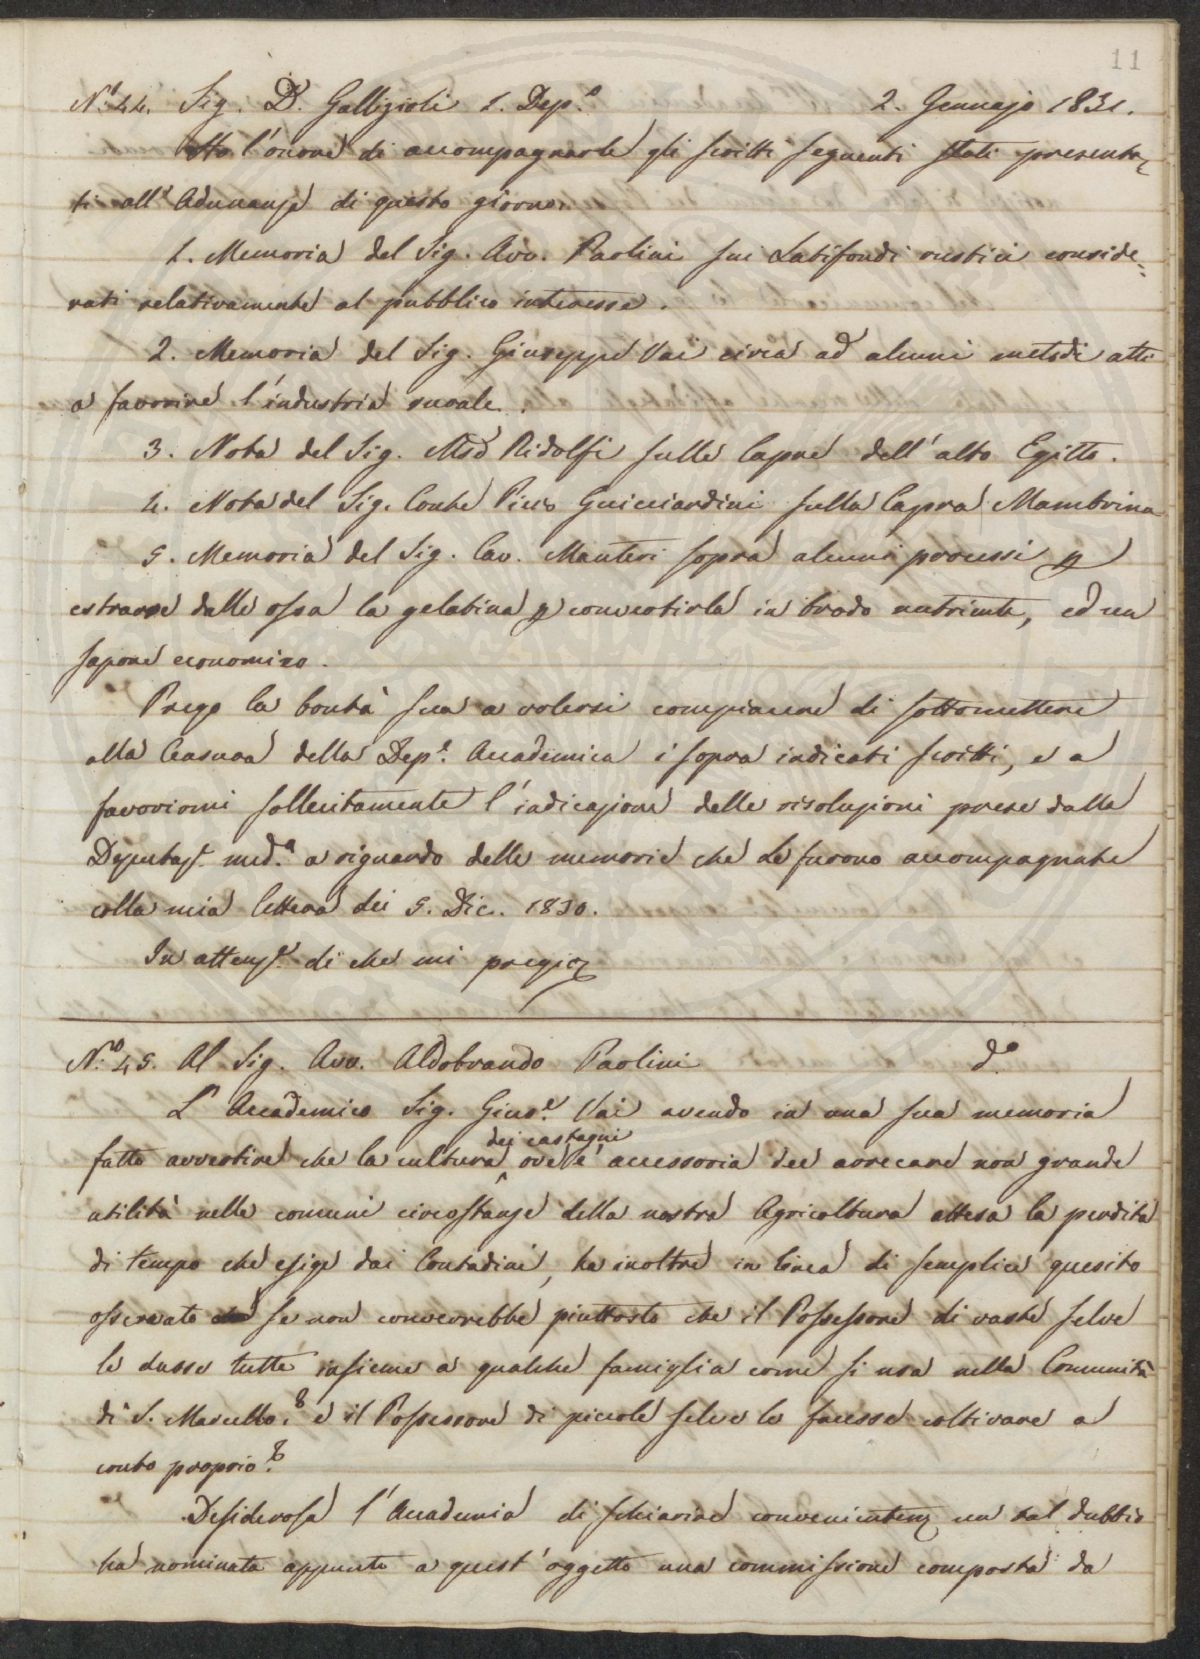 11
N.° 44. Sig. D.r Gallizioli 1. Dep.e 2. Gennajo 1831.
Ho l'onore di accompagnarle gli scritti seguenti stati presenta=
ti all'Adunanza di questo giorno.
1. Memoria del Sig. Avv. Paolini sui Latifondi rustici conside=
rati relativamente al pubblico interesse.
2. Memoria del Sig. Giuseppe Vai circa ad alcuni metodi atti
a favorire l'industria rurale.
3. Nota del Sig. Mse Ridolfi sulle Capre dell'alto Egitto.
4. Nota del Sig. Conte Piero Guicciardini sulla Capra Mambrina
5. Memoria del Sig. Cav. Manteri sopra alcuni processi p
estrarre dalle ossa la gelatina p convertirla in brodo nutriente, ed un
sapone economico.
Prego la bontà sua a volersi compiacere di sottomettere
alla Censura della Dep.e Accademica i sopra indicati scritti, e a
favorirmi sollecitamente l'indicazione delle risoluzioni prese dalla
Deputaz.e med.a a riguardo delle memorie che Le furono accompagnate
colla mia lettera dei 5. Dic. 1830.
In attenz.e di che mi pregio
N.ro 45. Al Sig. Avv. Aldobrando Paolini d.o
L'Accademico Sig. Gius.e Vai avendo in una sua memoria
dei castagni
fatto avvertire che la cultura ove è accessoria dee arrecare non grande
utilità nelle comuni circostanze della nostra Agricoltura attesa la perdita
di tempo che esige dai Contadini, ha inoltre in linea di semplice quesito
osservato se non converrebbe piuttosto che il Possessore di vaste selve
le dasse tutte insieme a qualche famiglia come si usa nella Comunità
di S. Marcello? e il Possessore di piccole selve le facesse coltivare a
conto proprio?
Desiderosa l'Accademia di schiarire convenientem un tal dubbio
ha nominata appunto a quest'oggetto una commissione composta da